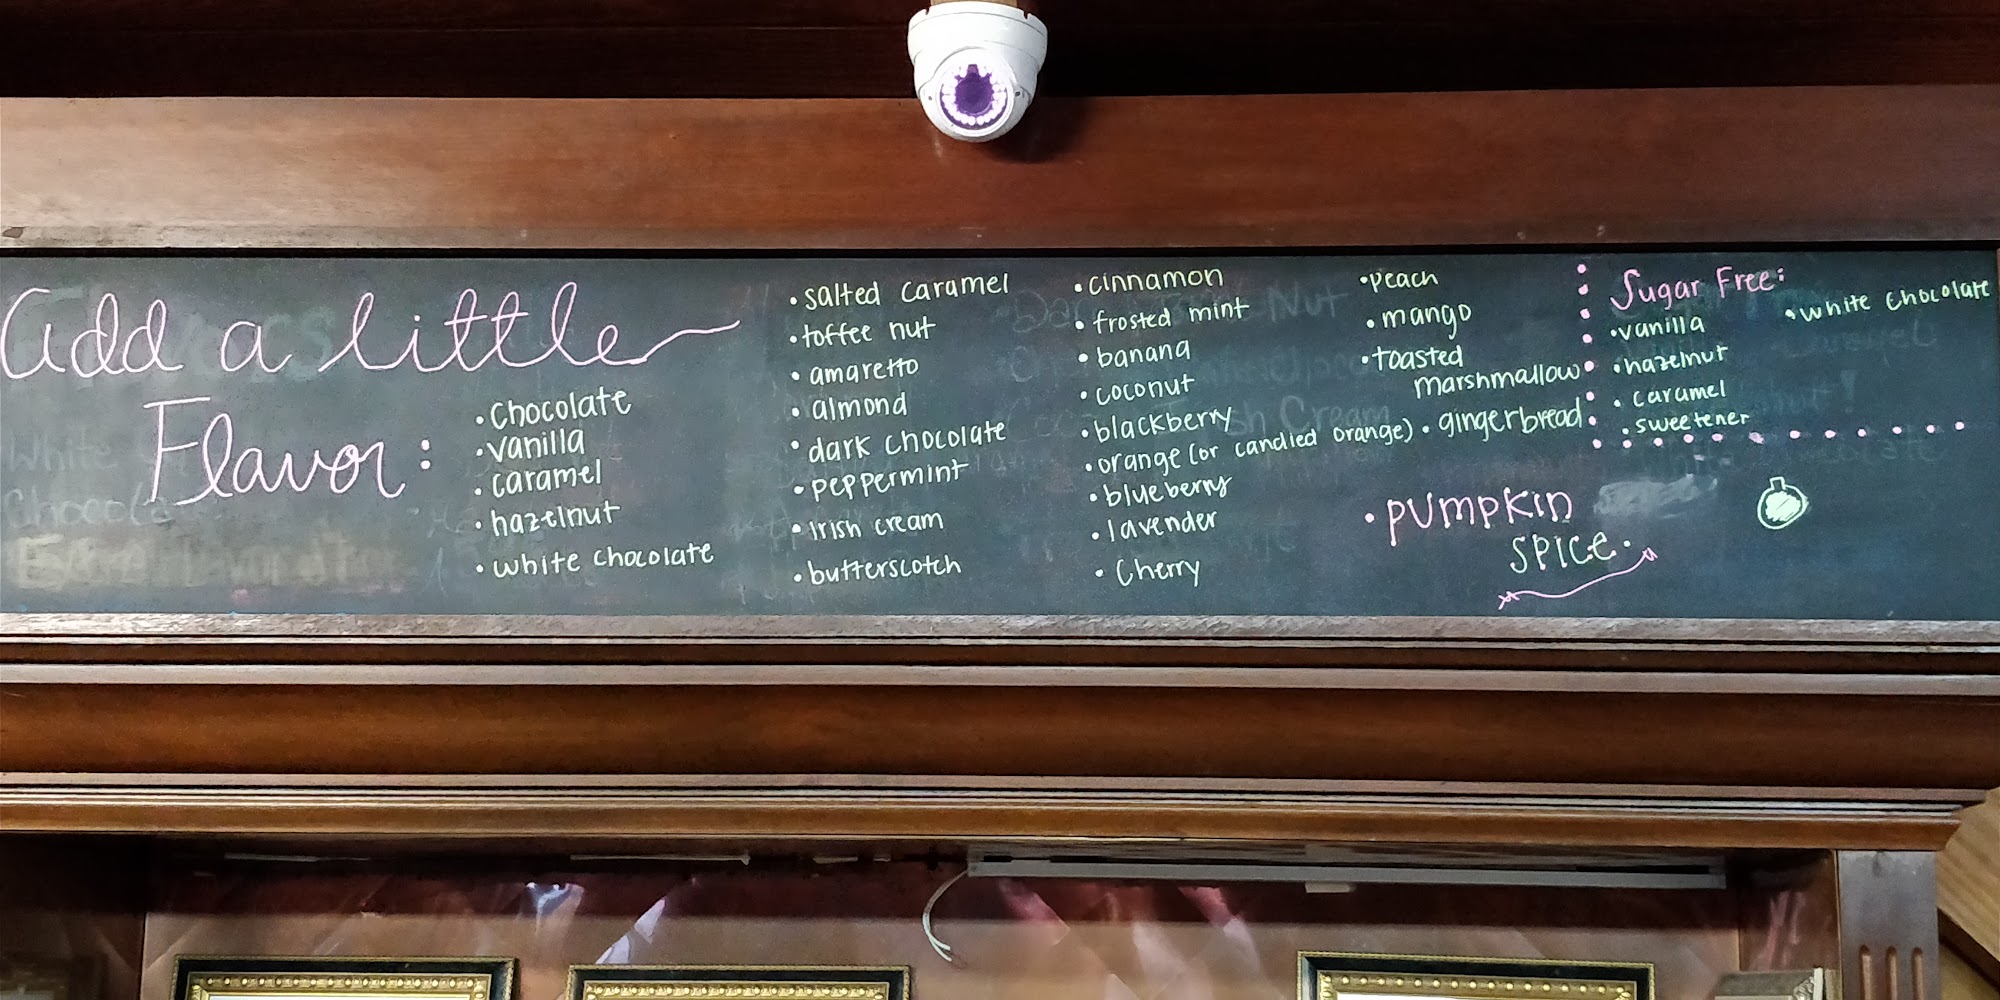 add a little
Flavor:
• Chocolate
• vanilla
• caramel
• hazelnut
• white chocolate
• salted caramel
• toffee nut
• amaretto
• almond
• dark chocolate
• peppermint
• Irish cream
• butterscotch
• cinnamon
• frosted mint
• banana
• coconut
• blackberry
• orange (or candied orange)
• blueberry
• lavender
• Cherry
• peach
• mango
• toasted
marshmallow
• gingerbread
• PUMPKIN
SPICE.
Sugar Free:
• vanilla
• hazelnut
• caramel
• sweetener
• white chocolate